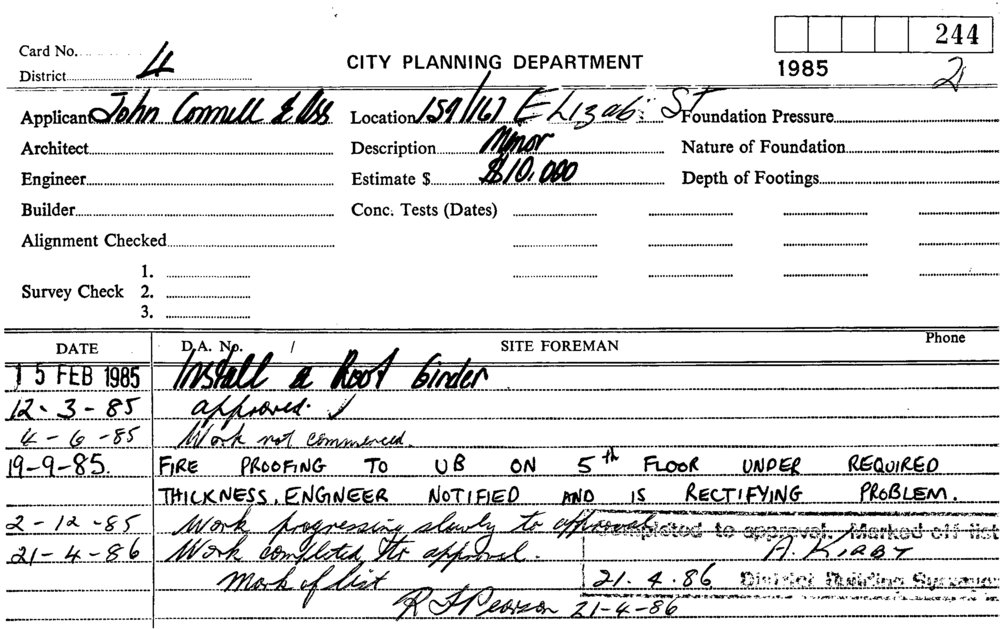 244
Card No. 4
CITY PLANNING DEPARTMENT
District
1985 21
Applicant John Connell & Ass Location 159/167 Elizab: St Foundation Pressure
Architect Description Minor Nature of Foundation
Engineer Estimate $ $10,000 Depth of Footings
Builder Conc. Tests (Dates)
Alignment Checked
1.
Survey Check 2.
3.
DATE D.A. No. / SITE FOREMAN Phone
15 FEB 1985 Install a Roof Girder
12-3-85 approved.
4-6-85 Work not commenced.
19-9-85. FIRE PROOFING TO UB ON 5th FLOOR UNDER REQUIRED
THICKNESS. ENGINEER NOTIFIED AND IS RECTIFYING PROBLEM.
2-12-85 Work progressing slowly to approval
Completed to approval. Marked off list
21-4-86 Work completed to approval. A. KIRBY
Mark of list 21.4.86 District Building Surveyor
R F Pearson 21-4-86